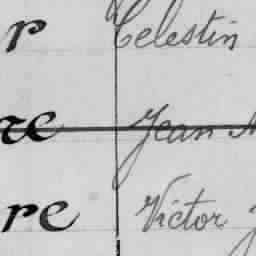 r Celestin
re Jean
re Victor